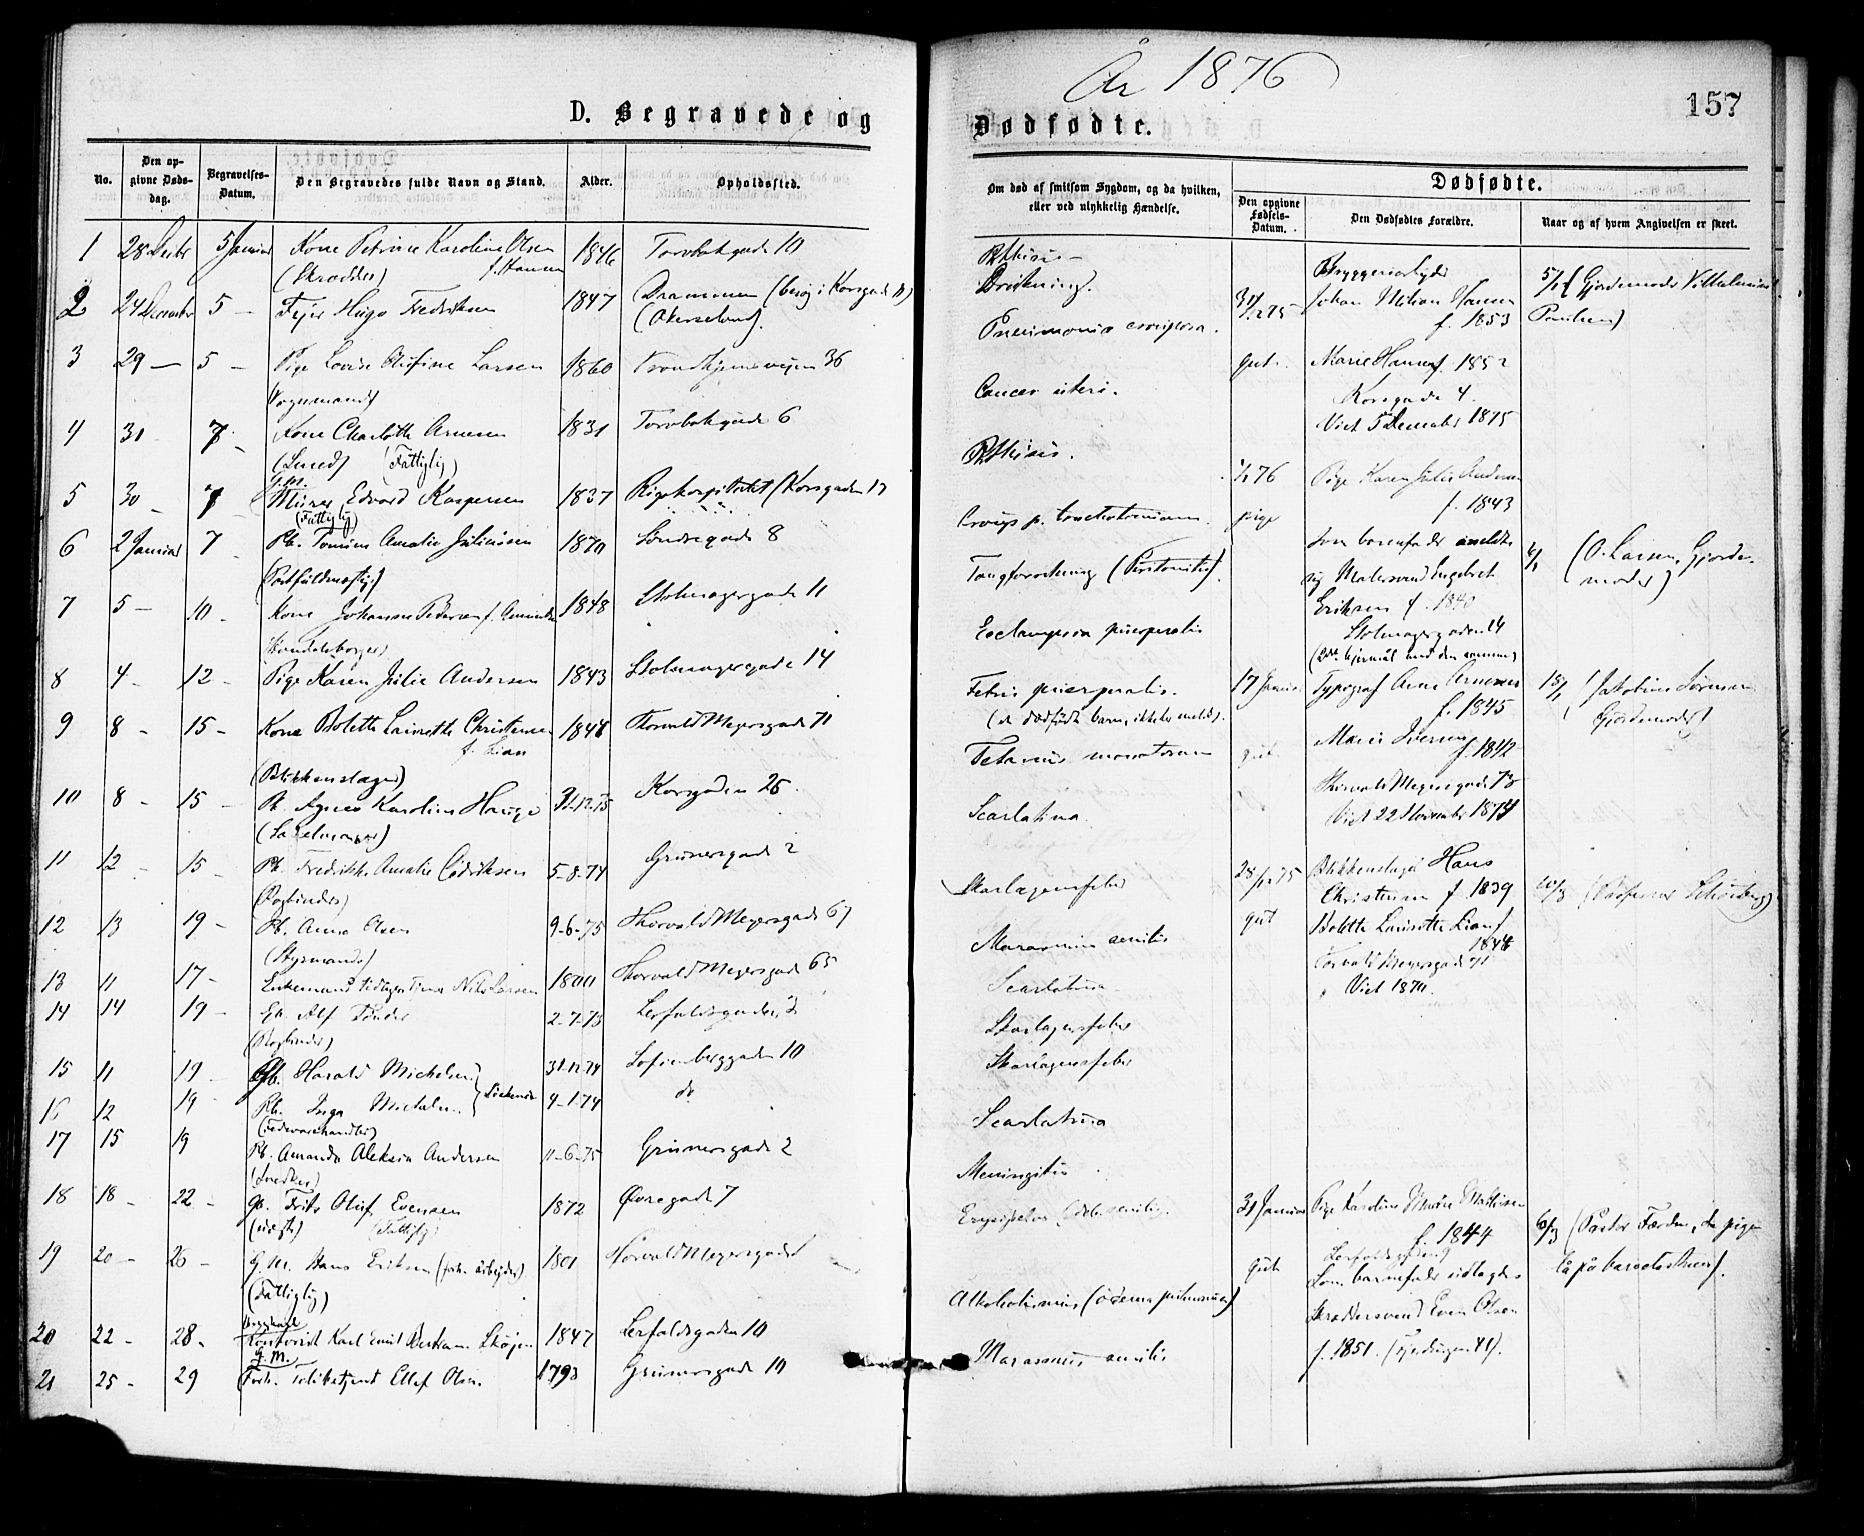 År 1876
157
D. Begravede og
Dødfødte.
No.
Den op-
givne Døds-
dag.
Begravelses-
Datum.
Den Begravedes fulde Navn og Stand.
Alder.
Opholdssted.
Om død af smitsom Sygdom, og da hvilken,
eller ved ulykkelig Hændelse.
Dødfødte.
Den opgivne
Fødsels-
Datum.
Den Dødfødtes Forældre.
Naar og af hvem Angivelsen er skeet.
1 28 Decbr 5 Januar Kone Petrine Karoline Olsen 1846 Torvbakgade 10
(Skrædder) f. Hansen
2 24 December 5 - Hugo Fredriksen 1847 Drammen (besøg i Korsgade
(Akerselven).
3 29 - 5 - Pige Lovise Olefine Larsen 1860 Trondhjemsveien 36
Vognmand
4 31 - 7 - Kone Charlotte Arnesen 1831 Torvbakgade 6
(Smed) (Fattiglig)
5 30 - 7 g.m. Murer Edvard Kaspersen 1837 Rigshospitalet (Korsgaden 17
(Fattiglig)
6 2 Januar 7 - Pb. Amalie Juliussen 1870 Søndregade 8
7 5 - 10 - Kone Johanne Pedersen f. 1848 Stolmagergade 11
(Handelsborger)
8 4 - 12 - Pige Karen Julie Andersen 1843 Stolmagergade 14
9 8 - 15 - Kone Bolette Laurette Christensen 1848 Thorvald Meyersgade 71
f. Lian
(Blikkenslager)
10 8 - 15 - Pb. Agnes Karoline Hauge 31-12-75 Korsgaden 25
(Sadelmager)
11 12 - 15 - Pb. Fredrikke Amalie 5-8-74 Grünersgade 2
(Bogbinder)
12 13 19 - Pb. Anna Olsen 9-6-75 Thorvald Meyersgade 67
(Styrmand)
13 11 17 - Enkemand Nils Larsen 1800 Thorvald Meyersgade 65
14 14 19 - Gb. Alf 2-7-73 Lerfaldsgaden 2
(Bogbinder)
15 11 19 - Gb. Harald Michelsen 31-12-74 Sofienberggaden 10
16 12 19 - Pb. Inga Michelsen 4-1-74 do
(Fedevarehandler)
17 15 19 Pb. Amanda Aleksia Andersen 11-6-75 Grünersgade 2
(Snedker)
18 18 - 22 - gb. Frits Oluf Evensen 1872 Øvregade 7
(uægte) (Fattiglig)
19 20 - 26 - G.M. Hans Eriksen (forh. arbejder) 1801 Thorvald Meyersgade
(Fattiglig)
20 22 - 28 - Kontorist Karl Emil 1847 Lerfaldsgaden 10
g. M.
21 25 - 29 Forh. Ellef Olsen 1793 Grünersgade 10
Phthisis -
Drukning.
Pneumonia crouposa.
Cancer uteri.
Phthisis.
Croup p. tracheotomiam.
(Peritonitis).
Eclampsia puerperalis
Febris puerperalis.
Tetanus neonatorum
Scarlatina.
Skarlagensfeber
Marasmus senilis
Scarlatina
Skarlagensfeber
Skarlagensfeber
Scarlatina
Meningitis
Erysipelas
Alkoholismus (oedema pulmonum)
Marasmus senilis
31/12 75
gut.
Bryggeriarbejder
Johan Hansen
f. 1853
Marie Hansen f. 1852
Korsgade 4.
Viet 5 December 1875
5/1 (Gjordemoder Vilhelmine
Paulsen)
1/1 76
pige
Pige Karen Julie Andersen
f. 1843
Som barnefader anmeldte
sig Malersvend Engebret
Eriksen f. 1840
Stolmagergaden 14
6/1 (O. Larsen, Gjorde-
moder)
17 Januar
gut.
Typograf Arne Arnesen
f. 1845
Marie Iversen
f. 1842
Thorvald Meyersgade 73
Viet 22 November 1874
18/1 (Jakobine Sørensen
Gjordemoder)
28/12 75
gut
Blikkenslager Hans
Christensen f. 1839
Bolette Laurette Lian f.
1848
Torvald Meyersgade 71
Viet 1870.
(Professor Schönberg)
31 Januar
gut
Pige Karoline Marie Mathisen
f. 1844
Som barnefader udlagdes
Skræddersvend Even Olsen
f. 1851.
6/3 (Pastor Færden, da pigen
lå på barselsstuen).